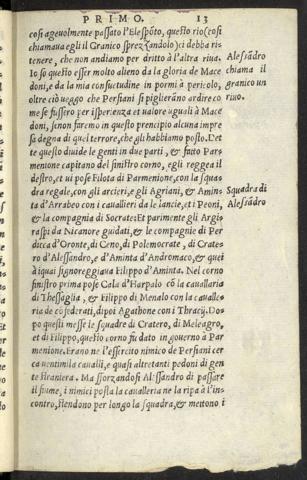 PRIMO. 13
cosi ageuolmente passato l'Elespõto, questo rio (cosi
chiamaua egli il Granico sprezzandolo) ci debba ri-
tenere, che non andiamo per dritto à l'altra riua.
Io so questo esser molto alieno da la gloria de Mace
doni, e da la mia consuetudine in pormi à pericolo,
oltre ciò ueggo che Persiani si piglierãno ardire co
me se fussero per isperienza et ualore uguali à Mace
doni, se non faremo in questo prencipio alcuna impre
sa degna di quel terrore, che gli habbiamo posto. Det
te questo diuide le genti in due parti, & fatto Par-
menione capitano del sinistro corno, egli reggea il
destro, et ui pose Filota di Parmenione, con la squa-
dra regale, con gli arcieri, e gli Agriani, & Amin-
ta d'Arrabeo con i cauallieri da le lancie, et i Peoni,
& la compagnia di Socrate: Et parimente gli Argi-
raspi da Nicanore guidati, & le compagnie di Per
dicca d'Oronte, di Ceno, di Polemocrate, di Crate-
ro d'Alessandro, e d'Aminta d'Andromaco, & quei
à i quai signoreggiaua Filippo d'Aminta. Nel corno
sinistro prima pose Gala d'Harpalo cõ la cauallaria
di Thessaglia, & Filippo di Menalo con la cauallæ-
ria de cõfederati, di poi Agathone con i Thracij. Do
po questi messe le squadre di Cratero, di Meleagro,
et di Filippo, questo corno fu dato in gouerno à Par
menione. Erano ne l'essercito nimico de Persiani cer
ca uentimila caualli, e quasi altretanti pedoni di gen
te straniera. Ma sforzandosi Alessandro di passare
il fiume, i nimici posta la caualleria ne la ripa à l'in-
contro, stendono per longo la squadra, & mettono i
Alessãdro
chiama il
granico un
riuo.
Squadra di
Alessãdro